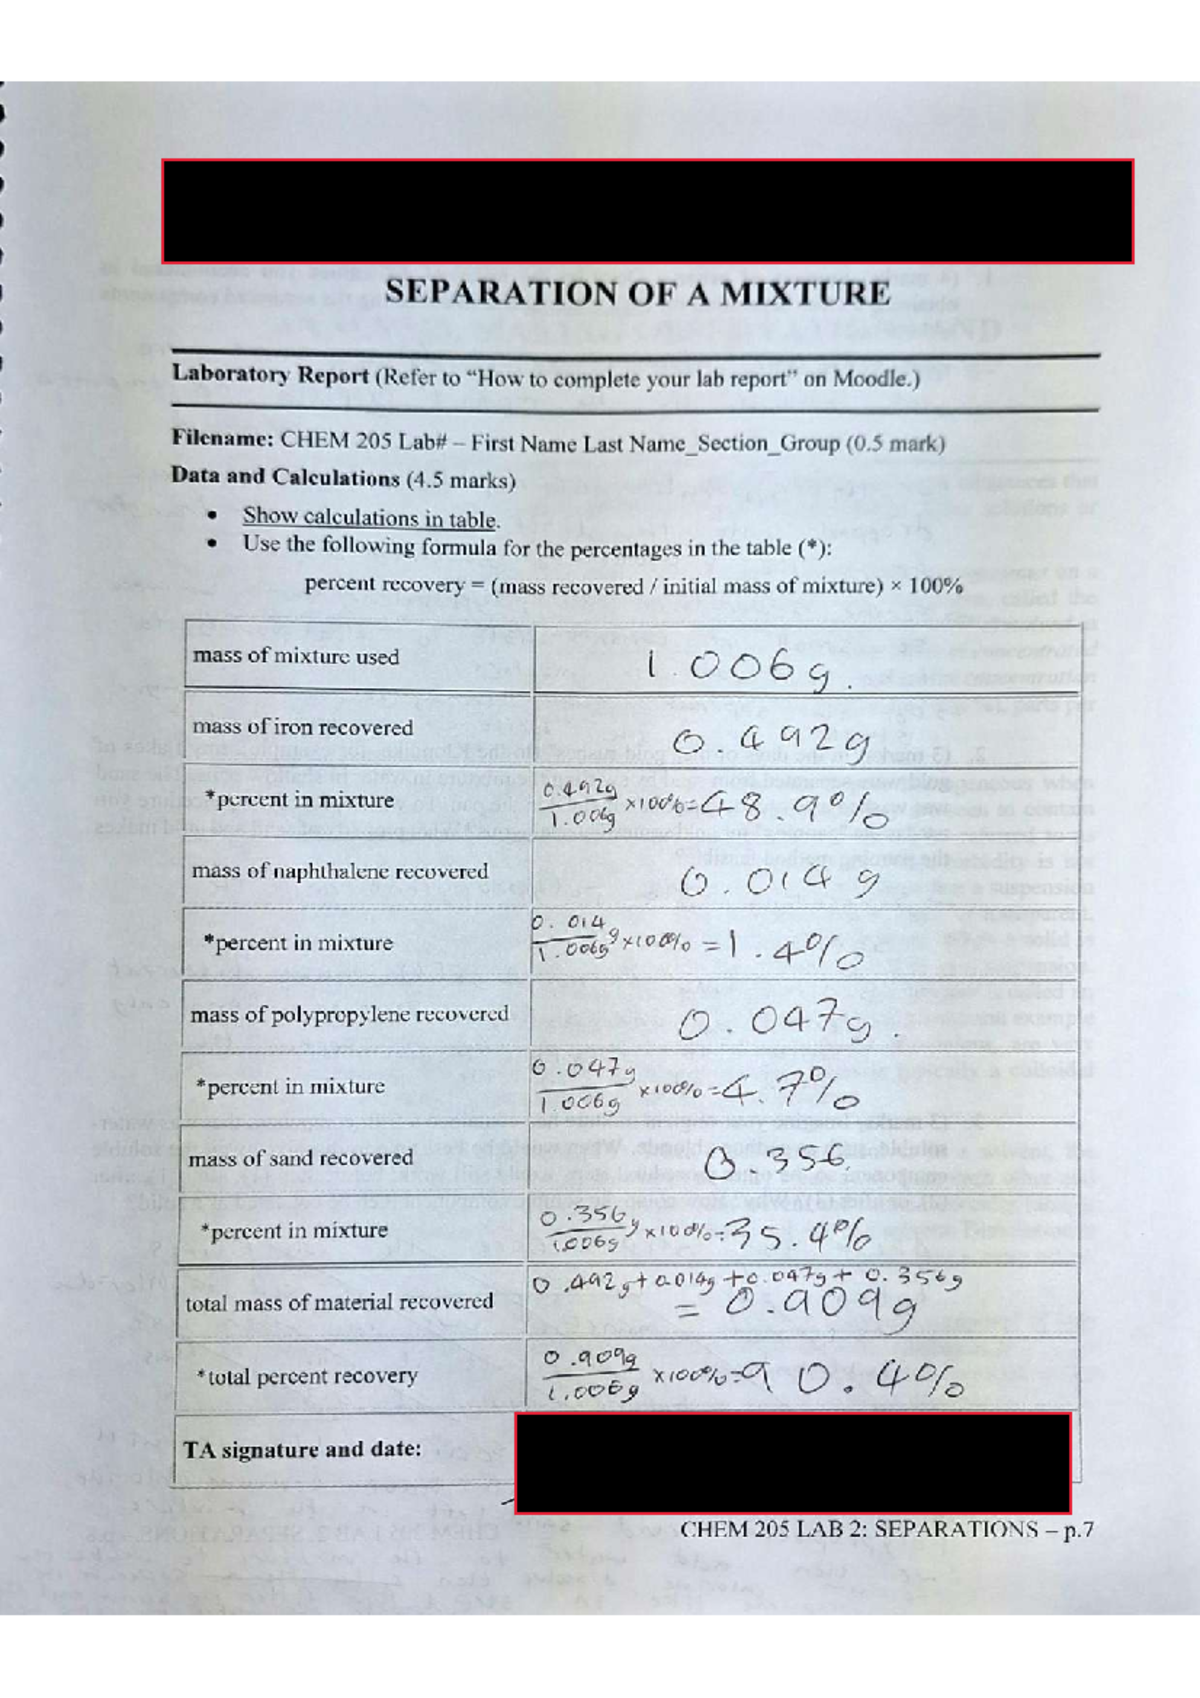 SEPARATION OF A MIXTURE
Laboratory Report (Refer to “How to complete your lab report” on Moodle.)
Filename: CHEM 205 Lab# – First Name Last Name_Section_Group (0.5 mark)
Data and Calculations (4.5 marks)
• Show calculations in table.
• Use the following formula for the percentages in the table (*):
percent recovery = (mass recovered / initial mass of mixture) × 100%
mass of mixture used 1.006g.
mass of iron recovered 0.492g
*percent in mixture 0.492g/1.006g ×100%=48.9%
mass of naphthalene recovered 0.014g
*percent in mixture 0.014g/1.006g ×100% =1.4%
mass of polypropylene recovered 0.047g.
*percent in mixture 0.047g/1.006g ×100%=4.7%
mass of sand recovered 0.356.
*percent in mixture 0.356g/1.006g ×100%=35.4%
total mass of material recovered 0.492g+0.014g+0.047g+0.356g
=0.909g
*total percent recovery 0.909g/1.006g ×100%=90.4%
TA signature and date:
CHEM 205 LAB 2: SEPARATIONS – p.7